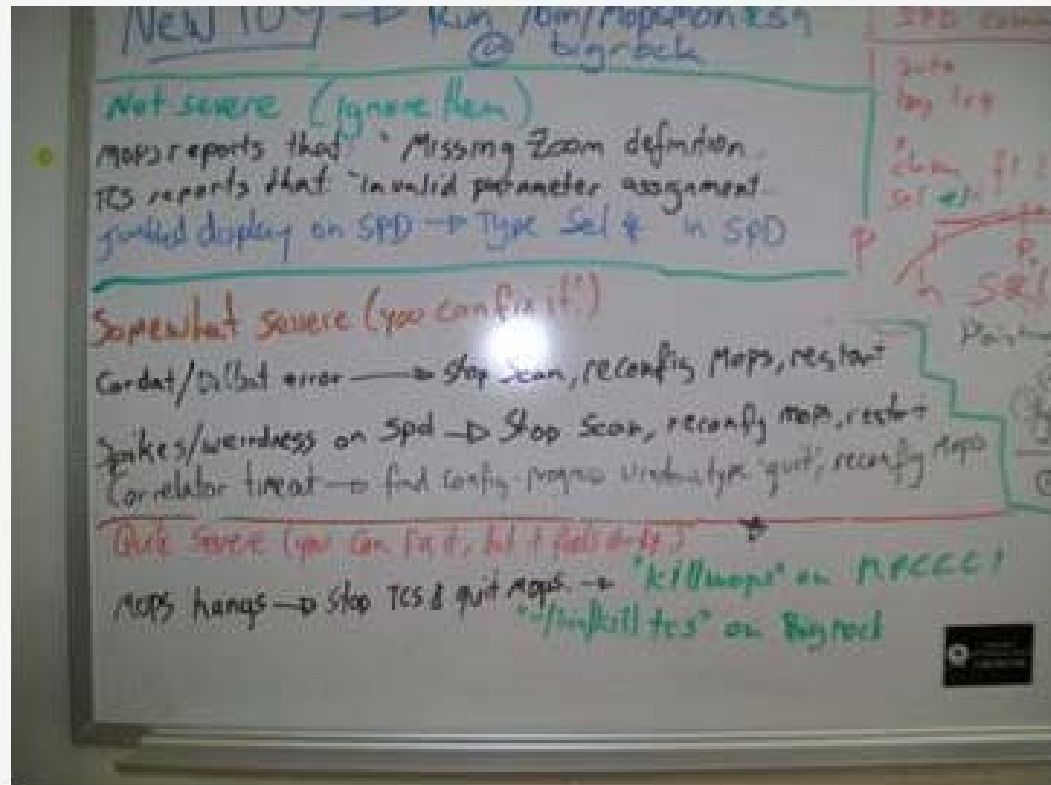 New → Run /bin/mopsmon.csh
@ bigrock
Not severe (ignore them)
MOPS reports that "Missing Zoom definition
TCS reports that "invalid parameter assignment
Jumbled display on SPD → Type Sel in SPD
Somewhat severe (you can fix it!)
error → Stop Scan, reconfig Mops, restart
Spikes/weirdness on spd → Stop Scan, reconfig mops, restart
Correlator → find config-progress window type 'quit', reconfig Mops
Quite Severe (you can fix it, but it feels dirty)
MOPS hangs → Stop TCS & quit Mops → "killmops" on
"~/bin/killtcs" on Bigrock
SPD
auto
P